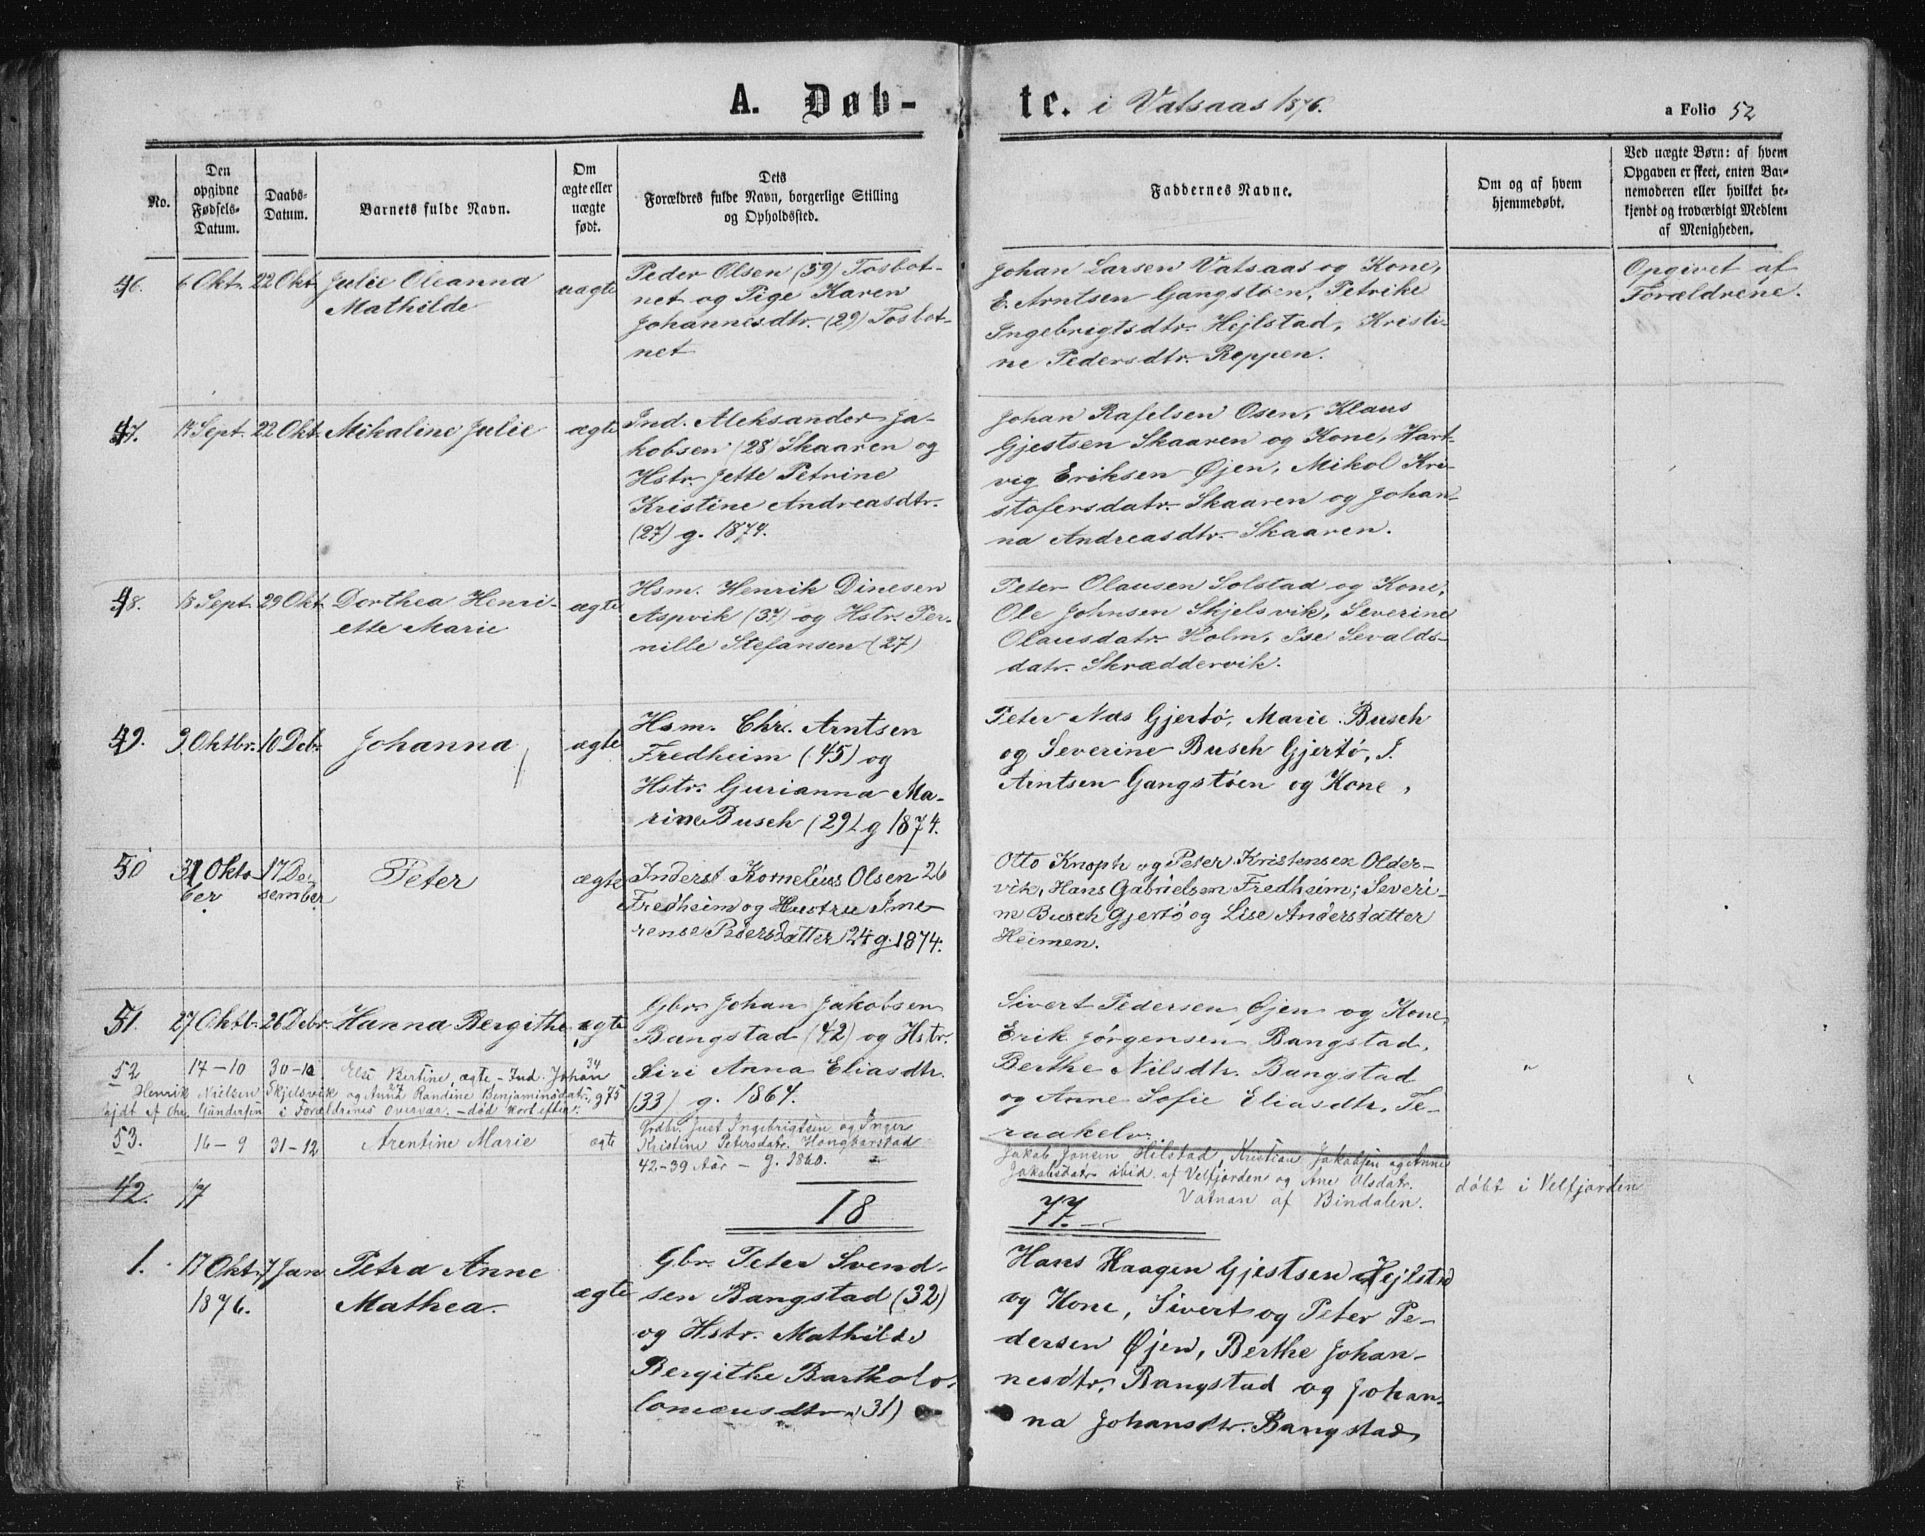 A. Døb- te. i Vatsaas 1876. a Folio 52
No.
Den
opgivne
Fødsels-
Datum.
Daabs-
Datum.
Barnets fulde Navn.
Om
ægte eller
uægte
født.
Dets
Forældres fulde Navn, borgerlige Stilling
og Opholdssted.
Faddernes Navne.
Om og af hvem
hjemmedøbt.
Ved uægte Børn: af hvem
Opgaven er skeet, enten Bar-
nemoderen eller hvilket be-
kjendt og troværdigt Medlem
af Menigheden.
46. 6 Okt. 22 Okt. Julie Oleanna
Mathilde
uægte
Peder Olsen (59) Tosbot-
net og Pige Karen
Johannesdtr. (29) Tosbot-
net
Johan Larsen Vatsaas og Kone,
E. Arntsen Gangstøen, Petrike
Ingebrigtsdtr. Hejlstad, Kristi-
ne Pedersdtr. Reppen.
Opgivet af
Forældrene.
47. Sept. 22 Okt. Mikaline Julie ægte
Ind. Aleksander Ja-
kobsen (28) Skaaren og
Hstr. Jette Petrine
Kristine Andreasdtr.
(27) g. 1874.
Johan Rafelsen Osen, Klaus
Gjestsen Skaaren og Kone, Hart-
vig Eriksen Øjen, Mikol Kri-
stofersdatr. Skaaren og Johan-
na Andreasdtr. Skaaren.
48. Sept. 29 Okt. Dorthea Henri-
ette Marie
ægte
Hsm. Henrik Dinesen
Aspvik (37) og Hstr. Per-
nille Stefansen (27)
Peter Olausen Solstad og Kone,
Ole Johnsen Skjelsvik, Severine
Olausdatr. Holm, Ise Sevalds-
datr. Skræddervik.
49. 9 Oktbr. 10 Debr. Johanna ægte
Hsm. Chr. Arntsen
Fredheim (45) og
Hstr. Gurianna Ma-
rine Busch (29) g 1874.
Peter Næs Gjertø, Marie Busch
og Severine Busch Gjertø, J.
Arntsen Gangstøen og Kone,
50 31 Okto-
ber
17 De-
sember
Peter ægte
Inderst Kornelius Olsen 26
Fredheim og Hustru Ime-
rense Pedersdatter 24 g. 1874.
Otto Knoph og Peter Kristensen Older-
vik, Hans Gabrielsen Fredheim; Severi-
ne Busch Gjertø og Lise Andersdatter
Heimen.
51. 27 Oktb. 26 Debr. Hanna Bergithe ægte
Gbr. Johan Jakobsen
Bangstad (42) og Hstr.
Siri Anna Eliasdtr.
(33) g. 1864.
Sivert Pedersen Øjen og Kone,
Erik Jørgensen Bangstad,
Berthe Nilsdtr. Bangstad
og Anne Sofie Eliasdtr. Te-
raakelv.
52 17-10 30-10 Else Bertine, ægte - Ind. Johan 34
Henrik Nielsen Skjelsvik og Anna 27 Randine Benjaminsdatr., g 75
hjdt af Chr. Gundersen i Forældrenes Overvær. - død kort efter.
53. 16-9 31-12 Arentine Marie ægte
Grdbr. Just Ingebrigtsen og Inger
Kristine Petersdatr. Hongbarstad
42-39 Aar - g. 1860.
Jakob Jonsen Hilstad, Kristian Jakobsen og Anne
Jakobsdatr. ibid. af Velfjorden og Ane Olsdatr.
Vatnan af Bindalen.
døbt i Velfjorden
42. 17
18
77.
1. 17 Okt.
1876.
7 Jan Petra Anne
Mathea.
ægte
Gbr. Peter Svend-
sen Bangstad (32)
og Hstr. Mathilde
Bergithe Bartholo-
lomeusdtr. (31)
Hans Haagen Gjestsen Hejlstad
og Kone, Sivert og Peter Pe-
dersen Øjen, Berthe Johan-
nesdtr. Bangstad og Johan-
na Johansdtr. Bangstad,